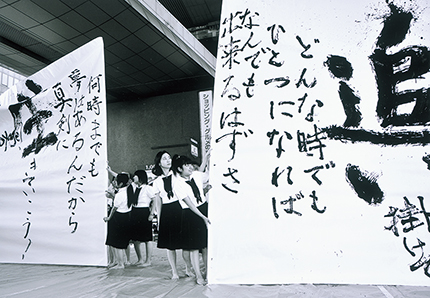 追い
掛け
どんな時でも
ひとつになれば
なんでも
出来るはずさ
何時までも
夢はあるんだから
真剣に
生きていこう!